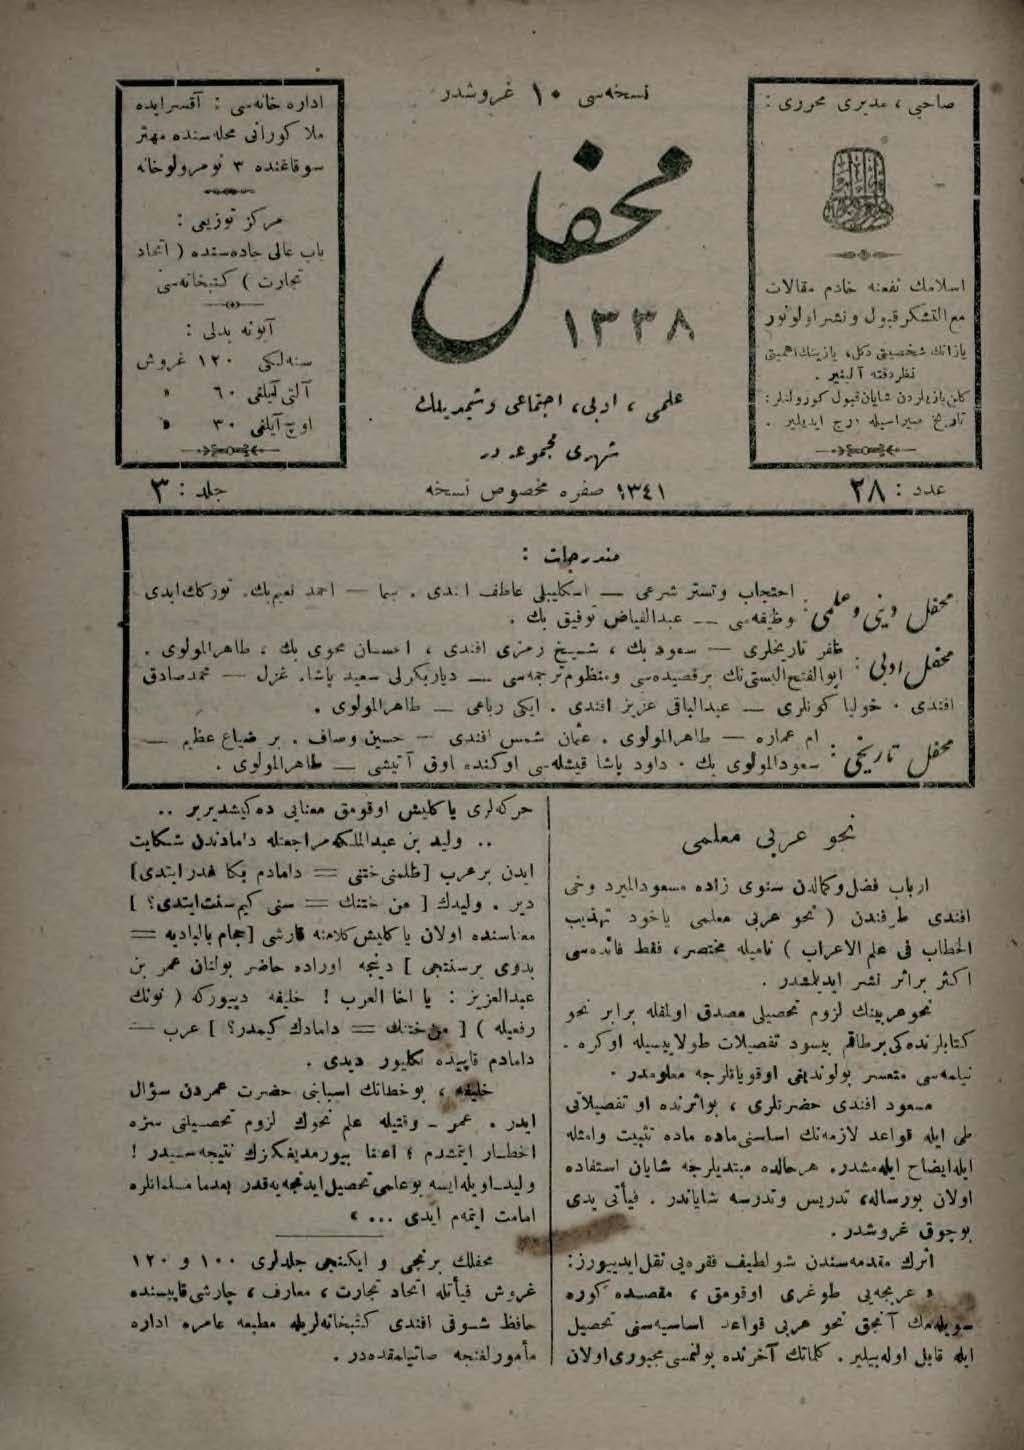 صاحبی ، مدیری محرری :
اسلامك نفعنه خادم مقالات
مع التشكر قبول و نشر اولونور
یازانك شخصیتی دكل، یازینك اهمیتی
نظر دقته آلینیر .
كلن یازیلردن شایان قبول كورولنلر :
تاریخ صیراسیله درج ایدیلیر .
نسخه‌سی ۱۰ غروشدر
محفل
۱۳۳۸
علمی ، ادبی، اجتماعی و شیمدیلك
شهری مجموعه در
اداره خانه‌سی : آقسرایده
ملا كورانی محله‌سنده مهتر
سوقاغنده ۳ نومرولو خانه
مركز توزیعی :
باب عالی جاده‌سنده ( اتحاد
تجارت ) كتبخانه‌سی
آبونه بدلی :
سنه‌لكی ۱۲۰ غروش
آلتی آیلغی ۶۰ »
اوچ آیلغی ۳۰ »
عدد : ۲۸
۱۳۴۱ صفره مخصوص نسخه
جلد : ۳
مندرجات :
محفل دینی و علمی : احتجاب و تستر شرعی — اسكلیبلی عاطف افندی . سما — احمد نعیم بك. توركك ابدی
وظیفه‌سی — عبدالفیاض توفیق بك .
محفل ادبی : ظفر تاریخلری — سعود بك ، شیخ رمزی افندی ، احسان محوی بك ، طاهر المولوی .
ابوالفتح البستی نك برقصیده‌سی ومنظوم ترجمه‌سی — دیاربكرلی سعید پاشا. غزل — محمد صادق
افندی . خولیا كونلری — عبدالباقی عزیز افندی . ایكی رباعی — طاهر المولوی .
محفل تاریخی : ام عماره — طاهر المولوی . عثمان شمس افندی — حسین وصاف . بر ضیاع عظیم —
سعود المولوی بك . داود پاشا قیشله‌سی اوكنده اوق آتیشی — طاهر المولوی .
نحو عربی معلمی
ارباب فضل وكمالدن سنوی زاده مسعود المیرد وخی
افندی طرفندن ( نحو عربی معلمی یاخود تهذیب
الخطاب فی علم الاعراب ) نامیله مختصر، فقط فائده‌سی
اكثر بر اثر نشر ایدیلمشدر .
نحو عربینك لزوم تحصیلی مصدق اولمقله برابر نحو
كتابلرنده‌كی برطاقم بیسود تفصیلات طولاییسیله اوكره
نیلمه‌سی متعسر بولوندیغی اوقویانلرجه معلومدر .
مسعود افندی حضرتلری ، بواثرنده او تفصیلاتی
طی ایله قواعد لازمه‌نك اساسنی ماده ماده تثبیت وامثله
ایله ایضاح ایله مشدر. هر حالده مبتدیلرجه شایان استفاده
اولان بورساله، تدریس وتدرسه شایاندر . فیأتی یدی
بوچوق غروشدر .
اثرك مقدمه‌سندن شو لطیف فقره‌یی نقل ایدییورز :
« عربجه‌یی طوغری اوقومق ، مقصده كوره
سویله‌مك آنجق نحو عربی قواعد اساسیه‌سنی تحصیل
ایله قابل اوله‌بیلیر . كلماتك آخرنده بولنمسی مجبوری اولان
حركه‌لری یاكلیش اوقومق معنایی ده‌كیشدیریر ..
.. ولید بن عبدالملكه مراجعتله دامادندن شكایت
ایدن بر عرب [ظلمنی ختنی = دامادم بكا غدر ایتدی]
دیر . ولیدك [ من ختنك = سنی كیم سنت ایتدی؟ ]
معناسنده اولان یاكلیش كلامنه قارشی [حجام بالبادیه =
بدوی بر سنتجی ] دینجه اوراده حاضر بولنان عمر بن
عبدالعزیز : یا اخا العرب ! خلیفه ( نونك
رفعیله ) [ من ختنك = دامادك كیمدر؟ ] عرب —
دامادم قاپیده كلیور دیدی .
خلیفه ، بوخطانك اسبابنی حضرت عمردن سؤال
ایدر . عمر - وقتیله علم نحوك لزوم تحصیلنی سزه
اخطار ایتمشدم ؛ اعتنا بیورمدیغكزك نتیجه سیدر !
ولید - اویله ایسه بوعلمی تحصیل ایدنجه‌یه قدر بعدما مسلمانلره
امامت ایتمه‌م ایدی ... »
محفلك برنجی و ایكنجی جلدلری ۱۰۰ و ۱۲۰
غروش فیأتله اتحاد تجارت ، معارف ، چارشی قاپیسنده
حافظ شوقی افندی كتبخانه‌لریله مطبعه عامره اداره
مأمورلغنجه صاتیلمقده‌در .